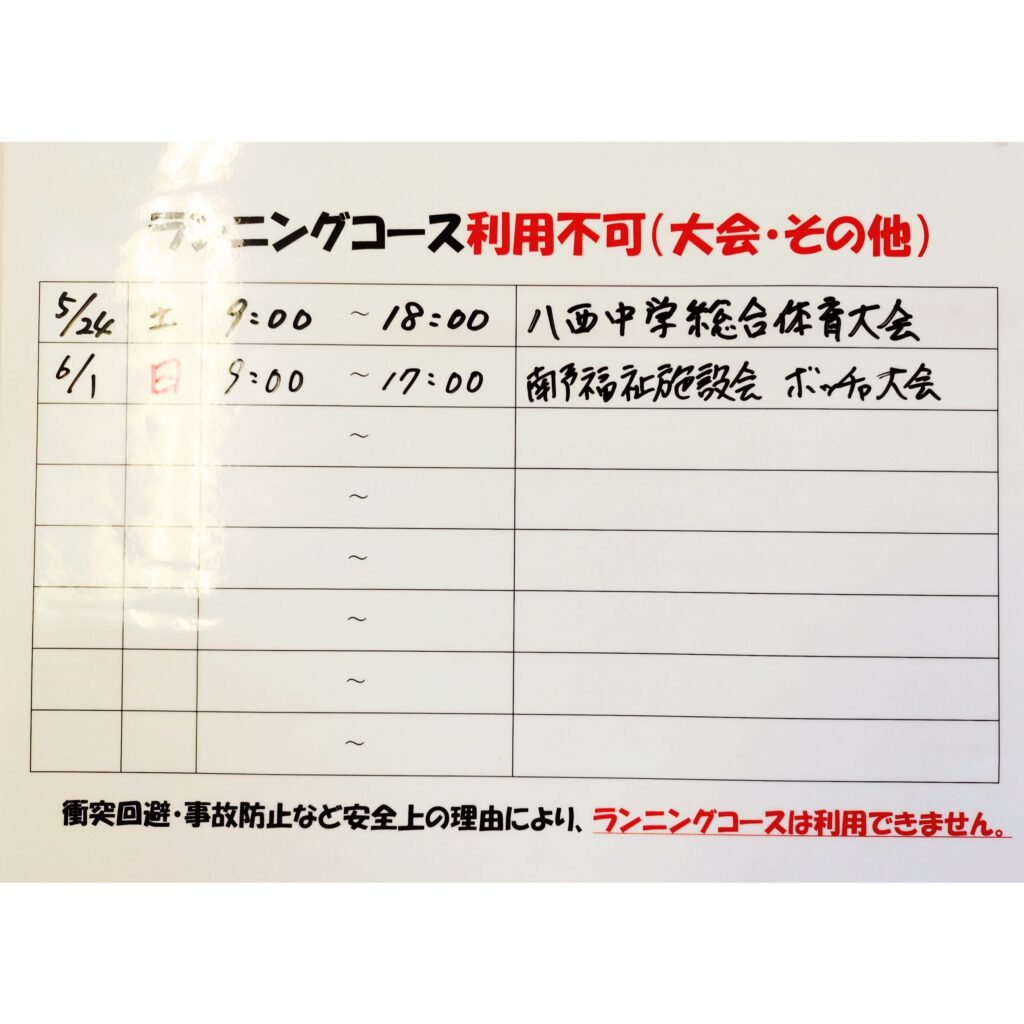 ランニングコース利用不可(大会・その他)
5/24 土 9:00 ~ 18:00 八西中学総合体育大会
6/1 日 9:00 ~ 17:00 南予福祉施設会 ボッチャ大会
~
~
~
~
~
~
衝突回避・事故防止など安全上の理由により、ランニングコースは利用できません。